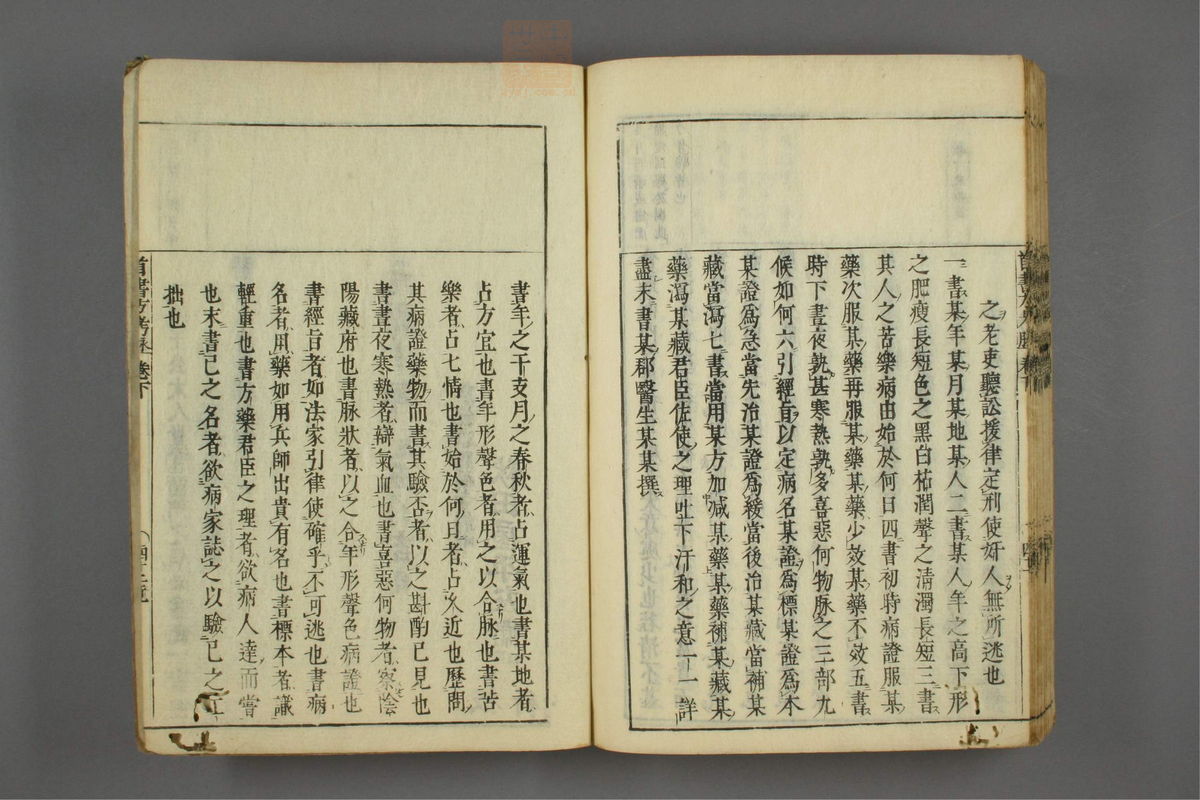 之老吏聽訟援律定刑使奸人無所逃也
一書某年某月某地某人二書某人年之高下形
之肥瘦長短色之黑白枯潤聲之清濁長短三書
其人之苦樂病由始於何日四書初時病證服某
藥次服某藥再服某藥某藥少效某藥不效五書
時下晝夜孰甚寒熱孰多喜惡何物脉之三部九
候如何六引經旨以定病名某證爲標某證爲本
某證爲急當先治某證爲緩當後治某藏當補某
藏當瀉七書當用某方加減某藥某藥補某藏某
藥瀉某藏君臣佐使之理吐下汗和之意一一詳
盡末書某郡醫生某某撰
書年之干支月之春秋者占運氣也書某地者
占方宜也書年形聲色者用之以合脉也書苦
樂者占七情也書始於何日者占久近也歷問
其病證藥物而書其驗否者以之斟酌已見也
書晝夜寒熱者辯氣血也書喜惡何物者察陰
陽藏府也書脉狀者以之合年形聲色病證也
書經旨者如法家引律使確乎不可逃也書病
名者用藥如用兵師出貴有名也書標本者識
輕重也書方藥君臣之理者欲病人達而嘗
也末書已之名者欲病家誌之以驗已之工
拙也
首書方考脉 卷下